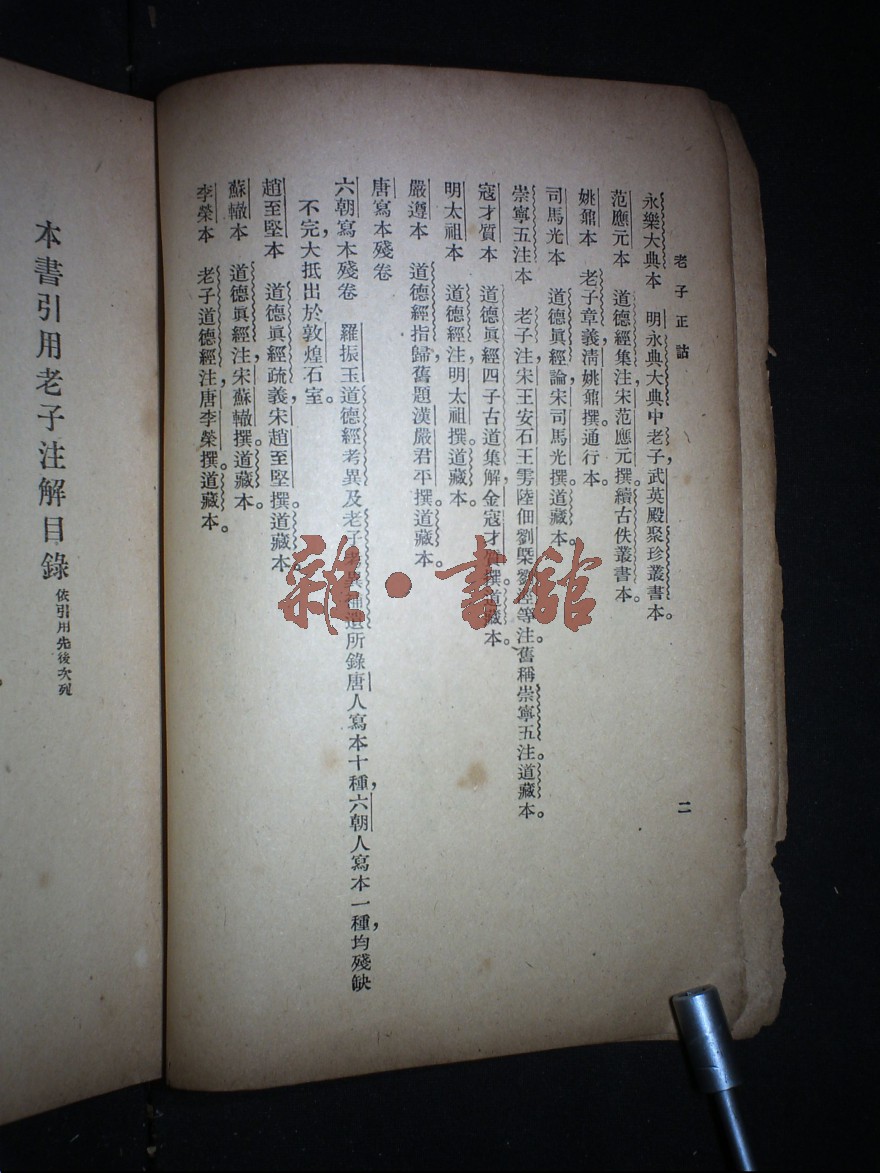 老子正詁
二
永樂大典本　明永典大典中老子，武英殿聚珍叢書本。
范應元本　道德經集注，宋范應元撰。續古佚叢書本。
姚鼐本　老子章義，淸姚鼐撰。通行本。
司馬光本　道德眞經論，宋司馬光撰。道藏本。
崇寧五注本　老子注，宋王安石王雱陸佃劉槩劉涇等注。舊稱崇寧五注。道藏本。
寇才質本　道德眞經四子古道集解，金寇才質撰。道藏本。
明太祖本　道德經注，明太祖撰。道藏本。
嚴遵本　道德經指歸，舊題漢嚴君平撰。道藏本。
唐寫本殘卷
六朝寫本殘卷　羅振玉道德經考異及老子考異補遺所錄唐人寫本十種，六朝人寫本一種，均殘缺
不完，大抵出於敦煌石室。
趙至堅本　道德眞經疏義，宋趙至堅撰。道藏本。
蘇轍本　道德眞經注，宋蘇轍撰。道藏本。
李榮本　老子道德經注，唐李榮撰。道藏本。
本書引用老子注解目錄　依引用先後次列
雜·書館